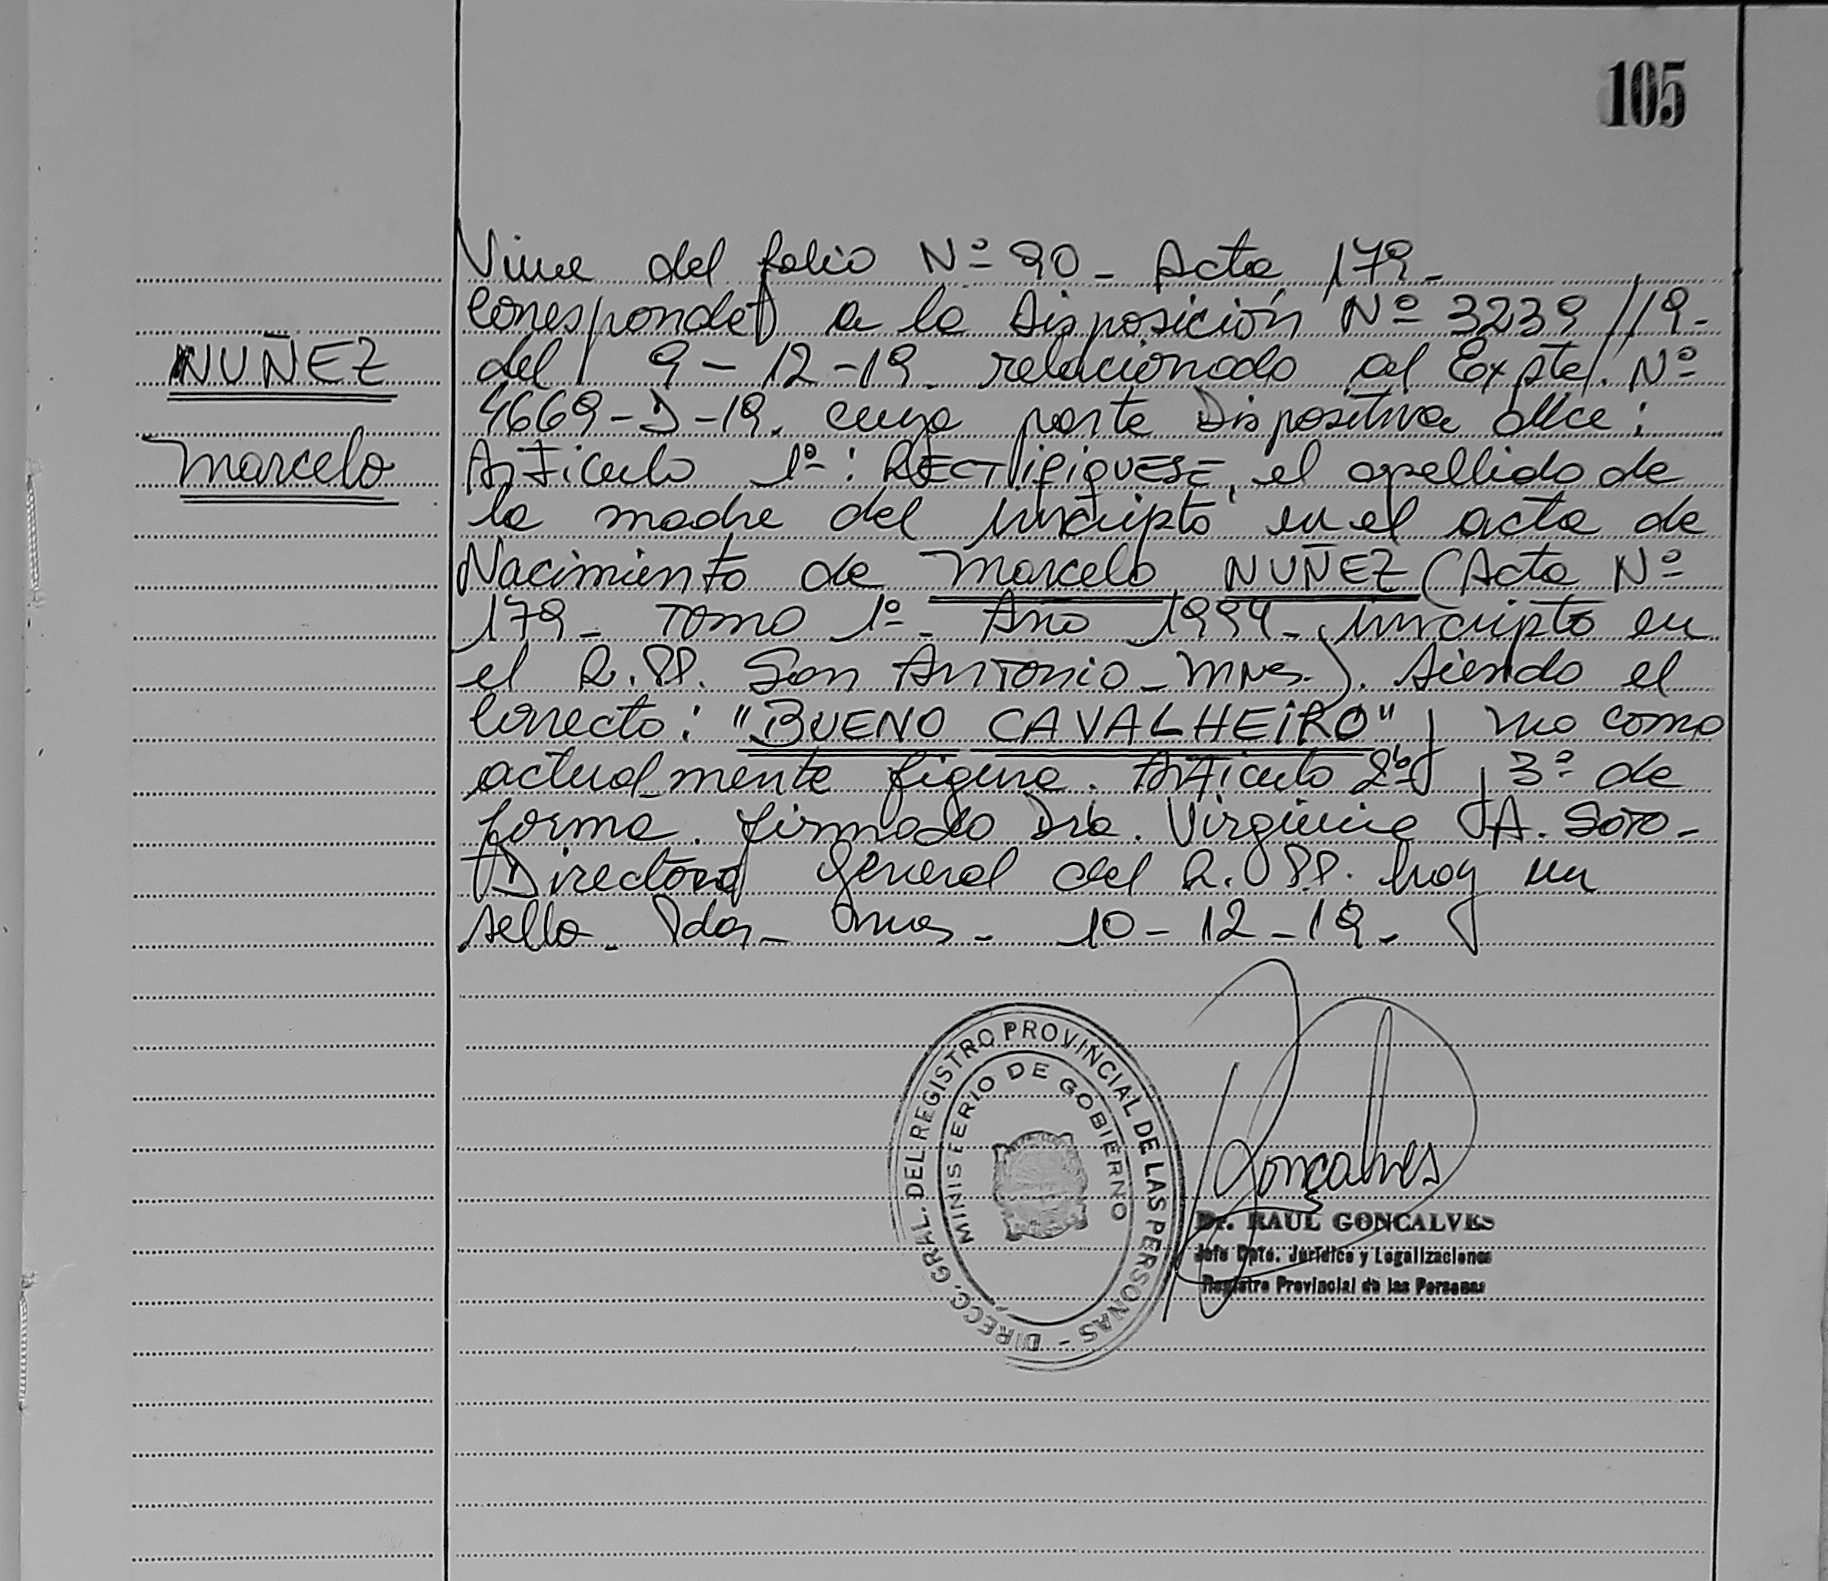 105
Viene del folio Nº 90 - Acta 179 -
Corresponde a la Disposición Nº 3239/19 -
NUÑEZ
del 9-12-19 relacionado al Expte. Nº
4669-D-19. cuya parte Dispositiva dice:
Marcelo
Artículo 1º: RECTIFIQUESE, el apellido de
la madre del inscripto en el acta de
Nacimiento de Marcelo NUÑEZ (Acta Nº
179 - Tomo 1º - Año 1994 - inscripto en
el R.PP. San Antonio - Mnes.). siendo el
correcto: "BUENO CAVALHEIRO" y no como
actualmente figura. Artículo 2º y 3º de
forma. firmado Dra. Virginia A. Soto -
Directora General del R.PP. hay un
sello. Pdas - Mnes - 10-12-19.
DIRECC. GRAL. DEL REGISTRO PROVINCIAL DE LAS PERSONAS -
MINISTERIO DE GOBIERNO
Goncalves
Dr. RAUL GONCALVES
Jefe Dpto. Jurídico y Legalizaciones
Registro Provincial de las Personas